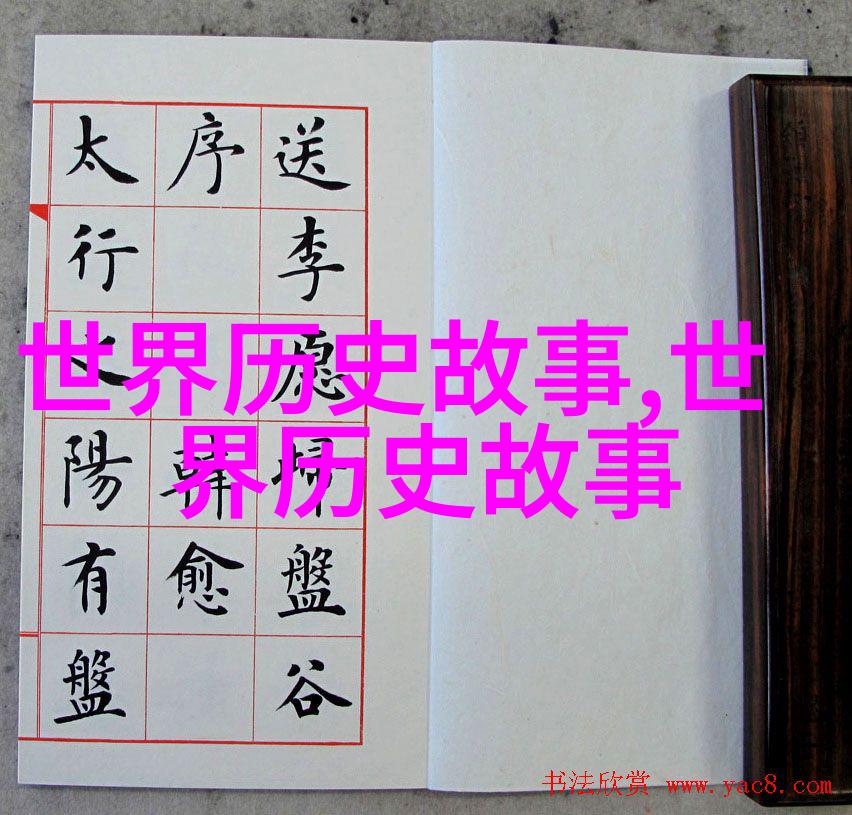 送李愿歸盤谷
序 韓愈
太行之陽有盤
世界历史故事,世
界历史故事
书法欣赏 www.yac8.com